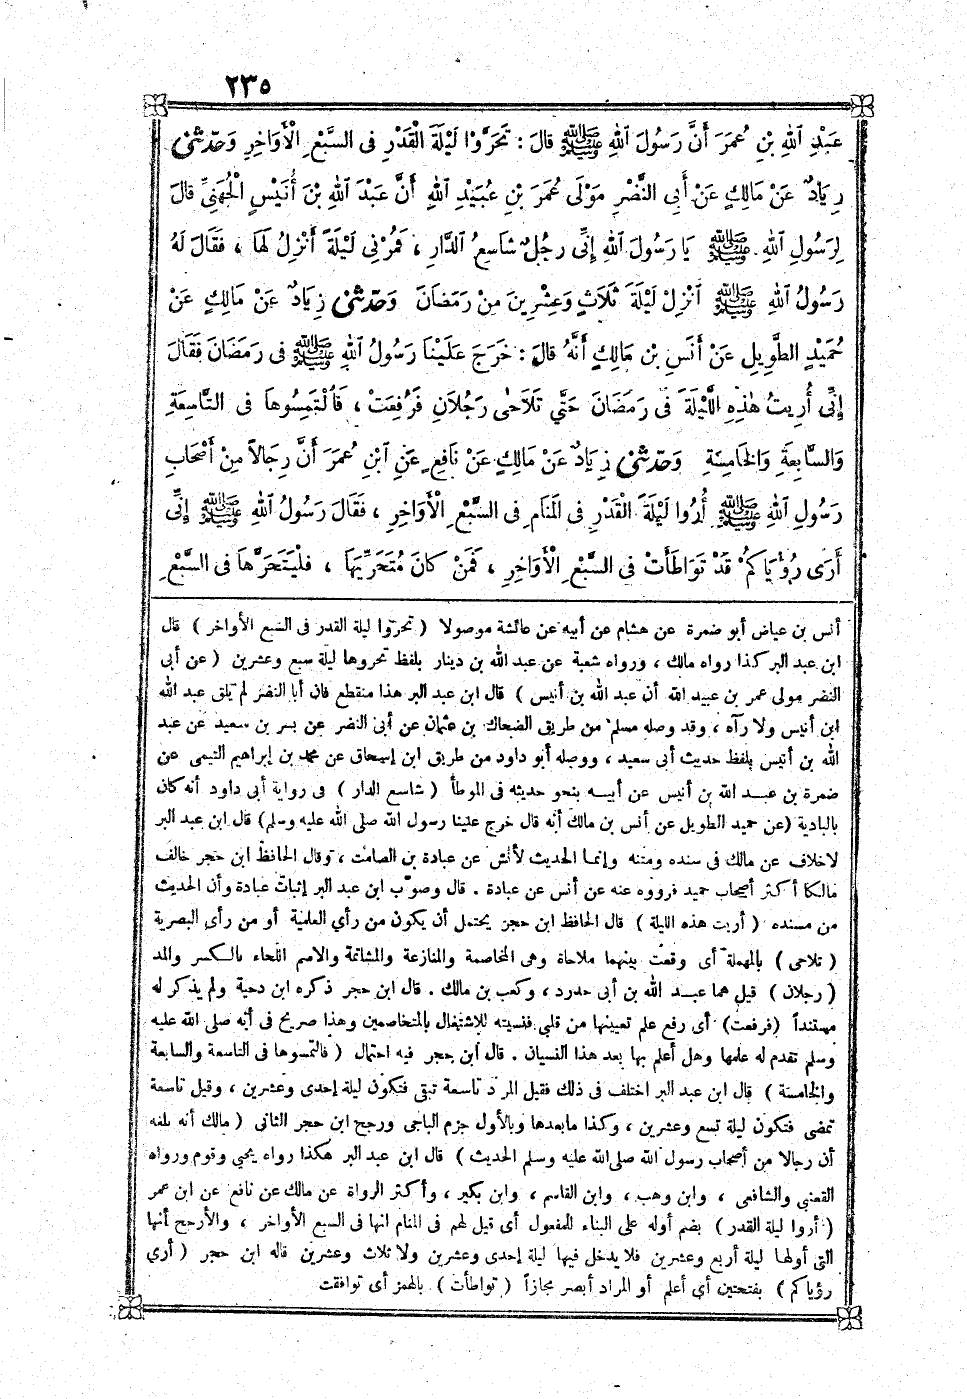 ٢٣٥
عَبْدِ اللهِ بْنِ عُمَرَ أَنَّ رَسُولَ اللهِ ﷺ قَالَ : تَحَرَّوْا لَيْلَةَ الْقَدْرِ فِى السَّبْعِ الْأَوَاخِرِ وَحَدّثنى
زِيَادٌ عَنْ مَالِكٍ عَنْ أَبِى النَّضْرِ مَوْلَى عُمَرَ بْنِ عُبَيْدِ اللهِ أَنَّ عَبْدَ اللهِ بْنَ أُنَيْسٍ الْجُهَنِىَّ قَالَ
لِرَسُولِ اللهِ ﷺ يَا رَسُولَ اللهِ إِنِّى رجُلٌ شَاسِعُ الدَّارِ ، فَمُرْنِى لَيْلَةً أَنْزِلُ لَهَا ، فَقَالَ لَهُ
رَسُولُ اللهِ ﷺ انْزِلْ لَيْلَةَ ثَلَاثٍ وَعِشْرِينَ مِنْ رَمَضَانَ وَحَدّثنى زِيَادٌ عَنْ مَالِكٍ عَنْ
حُمَيْدٍ الطَّوِيلِ عَنْ أَنَسِ بْنِ مَالِكٍ أَنَّهُ قَالَ : خَرَجَ عَلَيْنَا رَسُولُ اللهِ ﷺ فِى رَمَضَانَ فَقَالَ
إِنِّى أُرِيتُ هٰذِهِ اللَّيْلَةَ فِى رَمَضَانَ حَتَّى تَلَاحَى رَجُلَانِ فَرُفِعَتْ ، فَالْتَمِسُوهَا فِى التَّاسِعَةِ
وَالسَّابِعَةِ وَالْخَامِسَةِ وَحَدّثنى زِيَادٌ عَنْ مَالِكٍ عَنْ نَافِعٍ عَنِ ابْنِ عُمَرَ أَنَّ رِجَالاً مِنْ أَصْحَابِ
رَسُولِ اللهِ ﷺ أُرُوا لَيْلَةَ الْقَدْرِ فِى الْمَنَامِ فِى السَّبْعِ الْأَوَاخِرِ ، فَقَالَ رَسُولُ اللهِ ﷺ إِنِّى
أَرَى رُؤْيَاكُمْ قَدْ تَوَاطَأَتْ فِى السَّبْعِ الْأَوَاخِرِ ، فَمَنْ كَانَ مُتَحَرِّيَهَا ، فَلْيَتَحَرَّهَا فِى السَّبْعِ
أنس بن عياض أبو ضمرة عن هشام عن أبيه عن عائشة موصولا ( تحروا ليلة القدر فى السبع الأواخر ) قال
ابن عبد البر كذا رواه مالك ، ورواه شعبة عن عبد الله بن دينار بلفظ تحروها ليلة سبع وعشرين ( عن أبى
النضر مولى عمر بن عبيد الله أن عبد الله بن أنيس ) قال ابن عبد البر هذا منقطع فان أبا النضر لم يلق عبد الله
ابن أنيس ولا رآه ، وقد وصله مسلم من طريق الضحاك بن عثمان عن أبى النضر عن بسر بن سعيد عن عبد
الله بن أنيس بلفظ حديث أبى سعيد ، ووصله أبو داود من طريق ابن إسحاق عن محمد بن إبراهيم التيمى عن
ضمرة بن عبد الله بن أنيس عن أبيه بنحو حديثه فى الموطأ ( شاسع الدار ) فى رواية أبى داود أنه كان
بالبادية (عن حميد الطويل عن أنس بن مالك أنه قال خرج علينا رسول الله صلى الله عليه وسلم) قال ابن عبد البر
لاخلاف عن مالك فى سنده ومتنه وإنما الحديث لأنس عن عبادة بن الصامت ، وقال الحافظ ابن حجر خالف
مالكا أكثر أصحاب حميد فرووه عنه عن أنس عن عبادة . قال وصوّب ابن عبد البر إثبات عبادة وأن الحديث
من مسنده ( أريت هذه الليلة ) قال الحافظ ابن حجر يحتمل أن يكون من رأى العلمية أو من رأى البصرية
( تلاحى ) بالمهملة أى وقعت بينهما ملاحاة وهى المخاصمة والمنازعة والمشاتمة والاسم اللحاء بالكسر والمد
( رجلان ) قيل هما عبد الله بن أبى حدرد ، وكعب بن مالك . قال ابن حجر ذكره ابن دحية ولم يذكر له
مستنداً (فرفعت) أى رفع علم تعيينها من قلبى فنسيته للاشتغال بالمتخاصمين وهذا صريح فى أنه صلى الله عليه
وسلم تقدم له علمها وهل أعلم بها بعد هذا النسيان . قال ابن حجر فيه احتمال ( فالتمسوها فى التاسعة والسابعة
والخامسة ) قال ابن عبد البر اختلف فى ذلك فقيل المراد تاسعة تبقى فتكون ليلة إحدى وعشرين ، وقيل تاسعة
تمضى فتكون ليلة تسع وعشرين ، وكذا مابعدها وبالأول جزم الباجى ورجح ابن حجر الثانى ( مالك أنه بلغه
أن رجالا من أصحاب رسول الله صلى الله عليه وسلم الحديث ) قال ابن عبد البر هكذا رواه يحيى وقوم ورواه
القعنبى والشافعى ، وابن وهب ، وابن القاسم ، وابن بكير ، وأكثر الرواة عن مالك عن نافع عن ابن عمر
( أروا ليلة القدر ) بضم أوله على البناء للمفعول أى قيل لهم فى المنام انها فى السبع الأواخر ، والأرجح أنها
التى أولها ليلة أربع وعشرين فلا يدخل فيها ليلة إحدى وعشرين ولا ثلاث وعشرين قاله ابن حجر ( أرى
رؤياكم ) بفتحتين أى أعلم أو المراد أبصر مجازاً ( تواطأت ) بالهمز أى توافقت